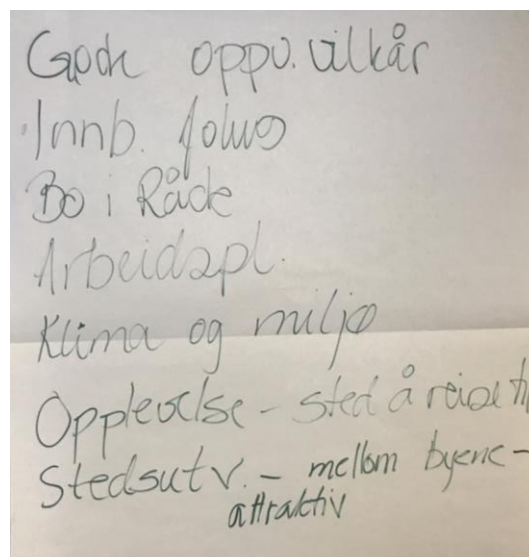 Gode oppv. vilkår
Innb. fokus
Bo i Råde
Arbeidspl.
Klima og miljø
Opplevelse - sted å reise ti
Stedsutv. - mellom byene -
attraktiv